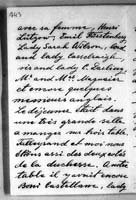 443
avec sa femme, Henri
Lützow, Emil Fürstenberg
Lady Sarah Wilson, Lord
and Lady Castlereagh,
sir and lady E. Darling
Mr and Mrs Maguire
et encore quelques
messieurs anglais.
Le déjeuner était dans
une très grande salle
a manger sur trois table.
Talleyrand et moi nous
étions assis des deux cotés
de la duchesse. A cette
table il y avait encore
Boni Castellane, lady